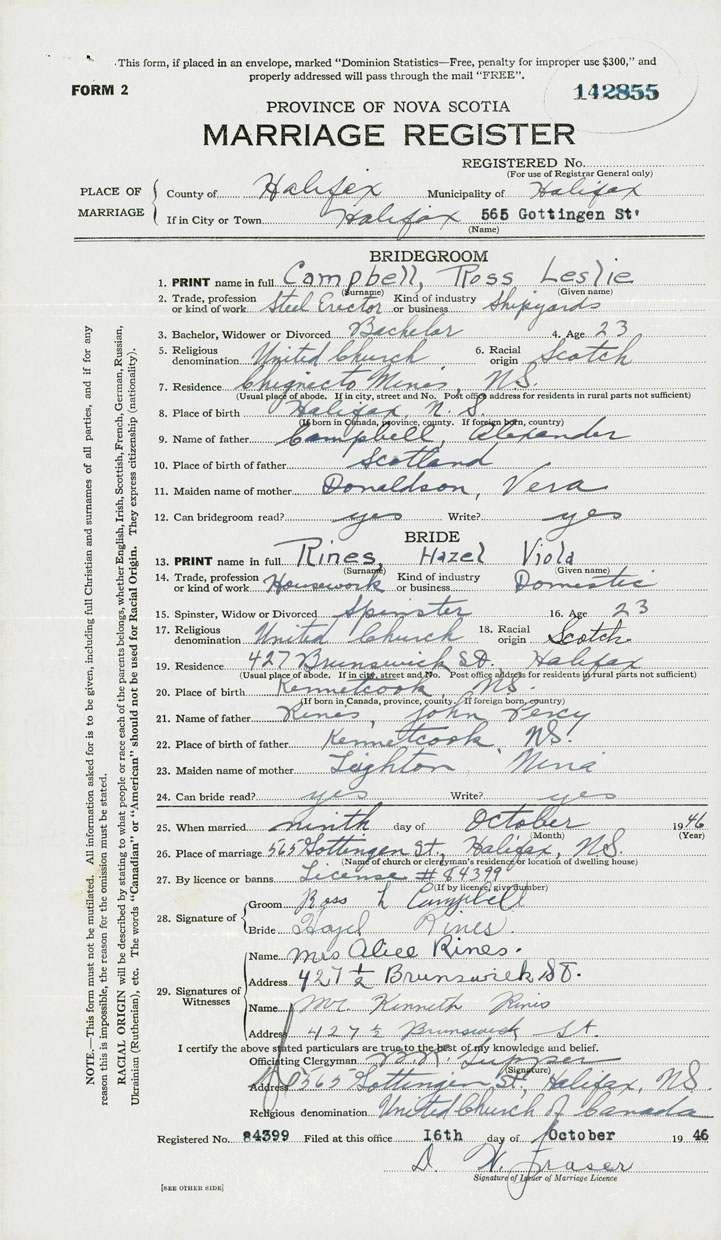 This form, if placed in an envelope, marked "Dominion Statistics—Free, penalty for improper use $300," and
properly addressed will pass through the mail "FREE".
FORM 2
142855
PROVINCE OF NOVA SCOTIA
MARRIAGE REGISTER
REGISTERED No.
(For use of Registrar General only)
PLACE OF MARRIAGE { County of Halifax Municipality of Halifax
If in City or Town Halifax 565 Gottingen St'
(Name)
BRIDEGROOM
1. PRINT name in full Campbell, Ross Leslie
(Surname) (Given name)
2. Trade, profession or kind of work Steel Erector Kind of industry or business Shipyards
3. Bachelor, Widower or Divorced Bachelor 4. Age 23
5. Religious denomination United Church 6. Racial origin Scotch
7. Residence Chignecto Mines, NS.
(Usual place of abode. If in city, street and No. Post office address for residents in rural parts not sufficient)
8. Place of birth Halifax, N.S.
(If born in Canada, province, county. If foreign born, country)
9. Name of father Campbell, Alexander
10. Place of birth of father Scotland
11. Maiden name of mother Donaldson, Vera
12. Can bridegroom read? yes Write? yes
BRIDE
13. PRINT name in full Rines, Hazel Viola
(Surname) (Given name)
14. Trade, profession or kind of work Housework Kind of industry or business Domestic
15. Spinster, Widow or Divorced Spinster 16. Age 23
17. Religious denomination United Church 18. Racial origin Scotch
19. Residence 427 Brunswick St. Halifax
(Usual place of abode. If in city, street and No. Post office address for residents in rural parts not sufficient)
20. Place of birth Kennetcook, NS.
(If born in Canada, province, county. If foreign born, country)
21. Name of father Rines, John Percy
22. Place of birth of father Kennetcook, NS.
23. Maiden name of mother Leighton, Nina
24. Can bride read? yes Write? yes
25. When married ninth day of October 1946
(Month) (Year)
26. Place of marriage 565 Gottingen St., Halifax, NS.
(Name of church or clergyman's residence or location of dwelling house)
27. By licence or banns License # 84399
(If by licence, give number)
28. Signature of { Groom Ross L Campbell
Bride Hazel Rines
29. Signatures of Witnesses { Name Mrs Alice Rines.
Address 427 ½ Brunswick St.
Name Mr Kenneth Rines
Address 427 ½ Brunswick St.
I certify the above stated particulars are true to the best of my knowledge and belief.
Officiating Clergyman
(Signature)
Address 565 Gottingen St., Halifax, NS.
Religious denomination United Church of Canada
Registered No. 84399 Filed at this office 16th day of October 19 46
D. W. Fraser
Signature of Issuer of Marriage Licence
[SEE OTHER SIDE]
NOTE.—This form must not be mutilated. All information asked for is to be given, including full Christian and surnames of all parties, and if for any
reason this is impossible, the reason for the omission must be stated.
RACIAL ORIGIN will be described by stating to what people or race each of the parents belongs, whether English, Irish, Scottish, French, German, Russian,
Ukrainian (Ruthenian), etc. The words "Canadian" or "American" should not be used for Racial Origin. They express citizenship (nationality).